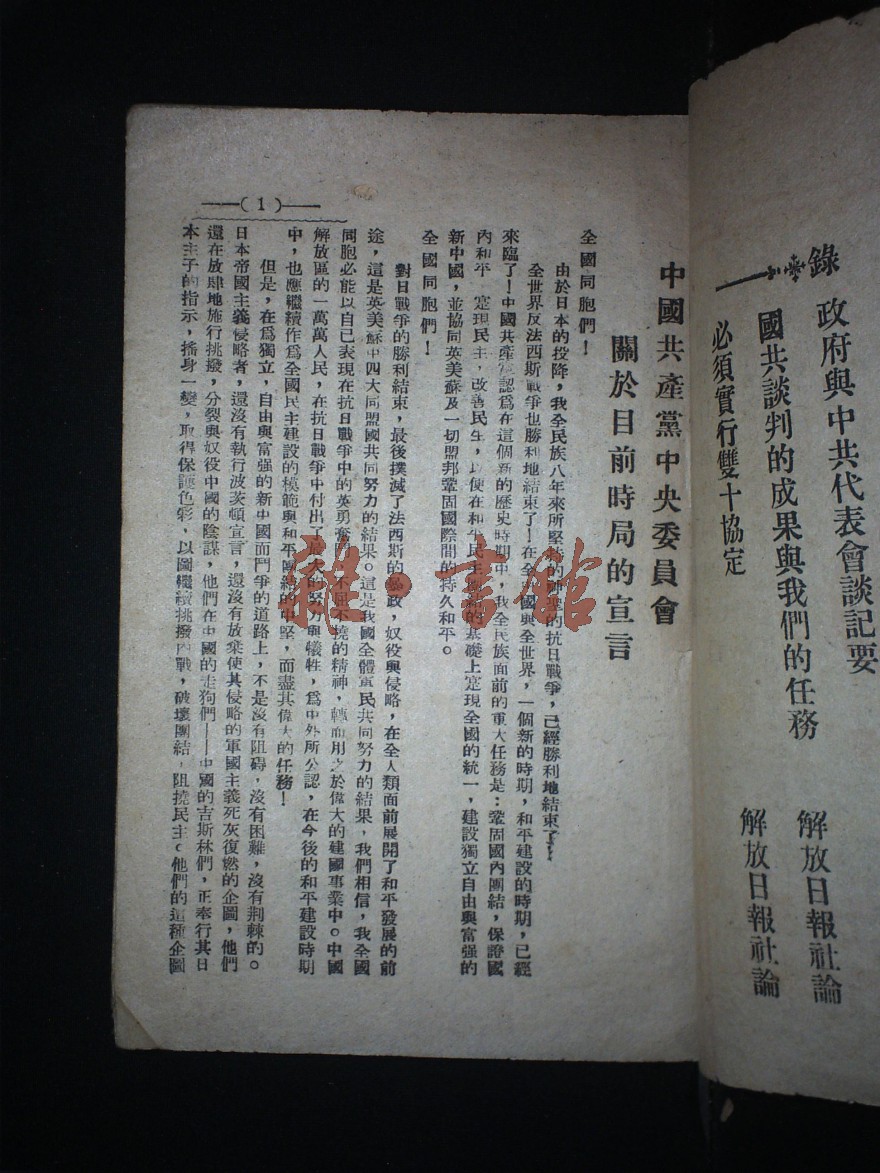 錄
政府與中共代表會談記要
國共談判的成果與我們的任務
解放日報社論
必須實行雙十協定
解放日報社論
中國共產黨中央委員會
關於目前時局的宣言
全國同胞們！
由於日本的投降，我全民族八年來所堅持的神聖的抗日戰爭，已經勝利地結束了！
全世界反法西斯戰爭也勝利地結束了！在全中國與全世界，一個新的時期，和平建設的時期，已經
來臨了！中國共產黨認爲在這個新的歷史時期中，我全民族面前的重大任務是：鞏固國內團結，保證國
內和平，實現民主，改善民生，以便在和平民主團結的基礎上實現全國的統一，建設獨立自由與富强的
新中國，並協同英美蘇及一切盟邦鞏固國際間的持久和平。
全國同胞們！
對日戰爭的勝利結束，最後撲滅了法西斯的暴政，奴役與侵略，在全人類面前展開了和平發展的前
途，這是英美蘇中四大同盟國共同努力的結果。這是我國全體軍民共同努力的結果，我們相信，我全國
同胞必能以自己表現在抗日戰爭中的英勇奮鬥，不屈不撓的精神，轉而用之於偉大的建國事業中。中國
解放區的一萬萬人民，在抗日戰爭中付出了最大的努力與犧牲，爲中外所公認，在今後的和平建設時期
中，也應繼續作爲全國民主建設的模範與和平團結的中堅，而盡其偉大的任務！
但是，在爲獨立，自由與富强的新中國而鬥爭的道路上，不是沒有阻碍，沒有困難，沒有荆棘的。
日本帝國主義侵略者，還沒有執行波茨頓宣言，還沒有放棄使其侵略的軍國主義死灰復燃的企圖，他們
還在放肆地施行挑撥，分裂與奴役中國的陰謀，他們在中國的走狗們——中國的吉斯林們，正奉行其日
本主子的指示，搖身一變，取得保護色彩，以圖繼續挑撥內戰，破壞團結，阻撓民主。他們的這種企圖
—(1)—
雜·書館